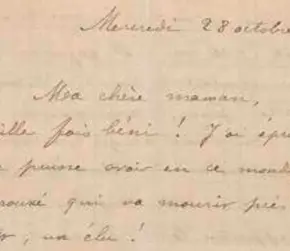 Mercredi 28 octobre
Ma chère maman,
ille fois béni ! J'ai épr
e puisse avoir en ce mond
rouvé qui va mourir près
r, un élu !